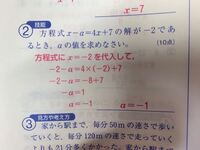 x=7
② 技能 方程式 x−a=4x+7 の解が−2であ
るとき，aの値を求めなさい。 (10点)
方程式に x=−2 を代入して，
−2−a=4×(−2)+7
−2−a=−8+7
−a=1
a=−1
a=−1
③ 見方や考え方 家から駅まで，毎分50mの速さで歩い
ていくと，毎分120mの速さで走ってい